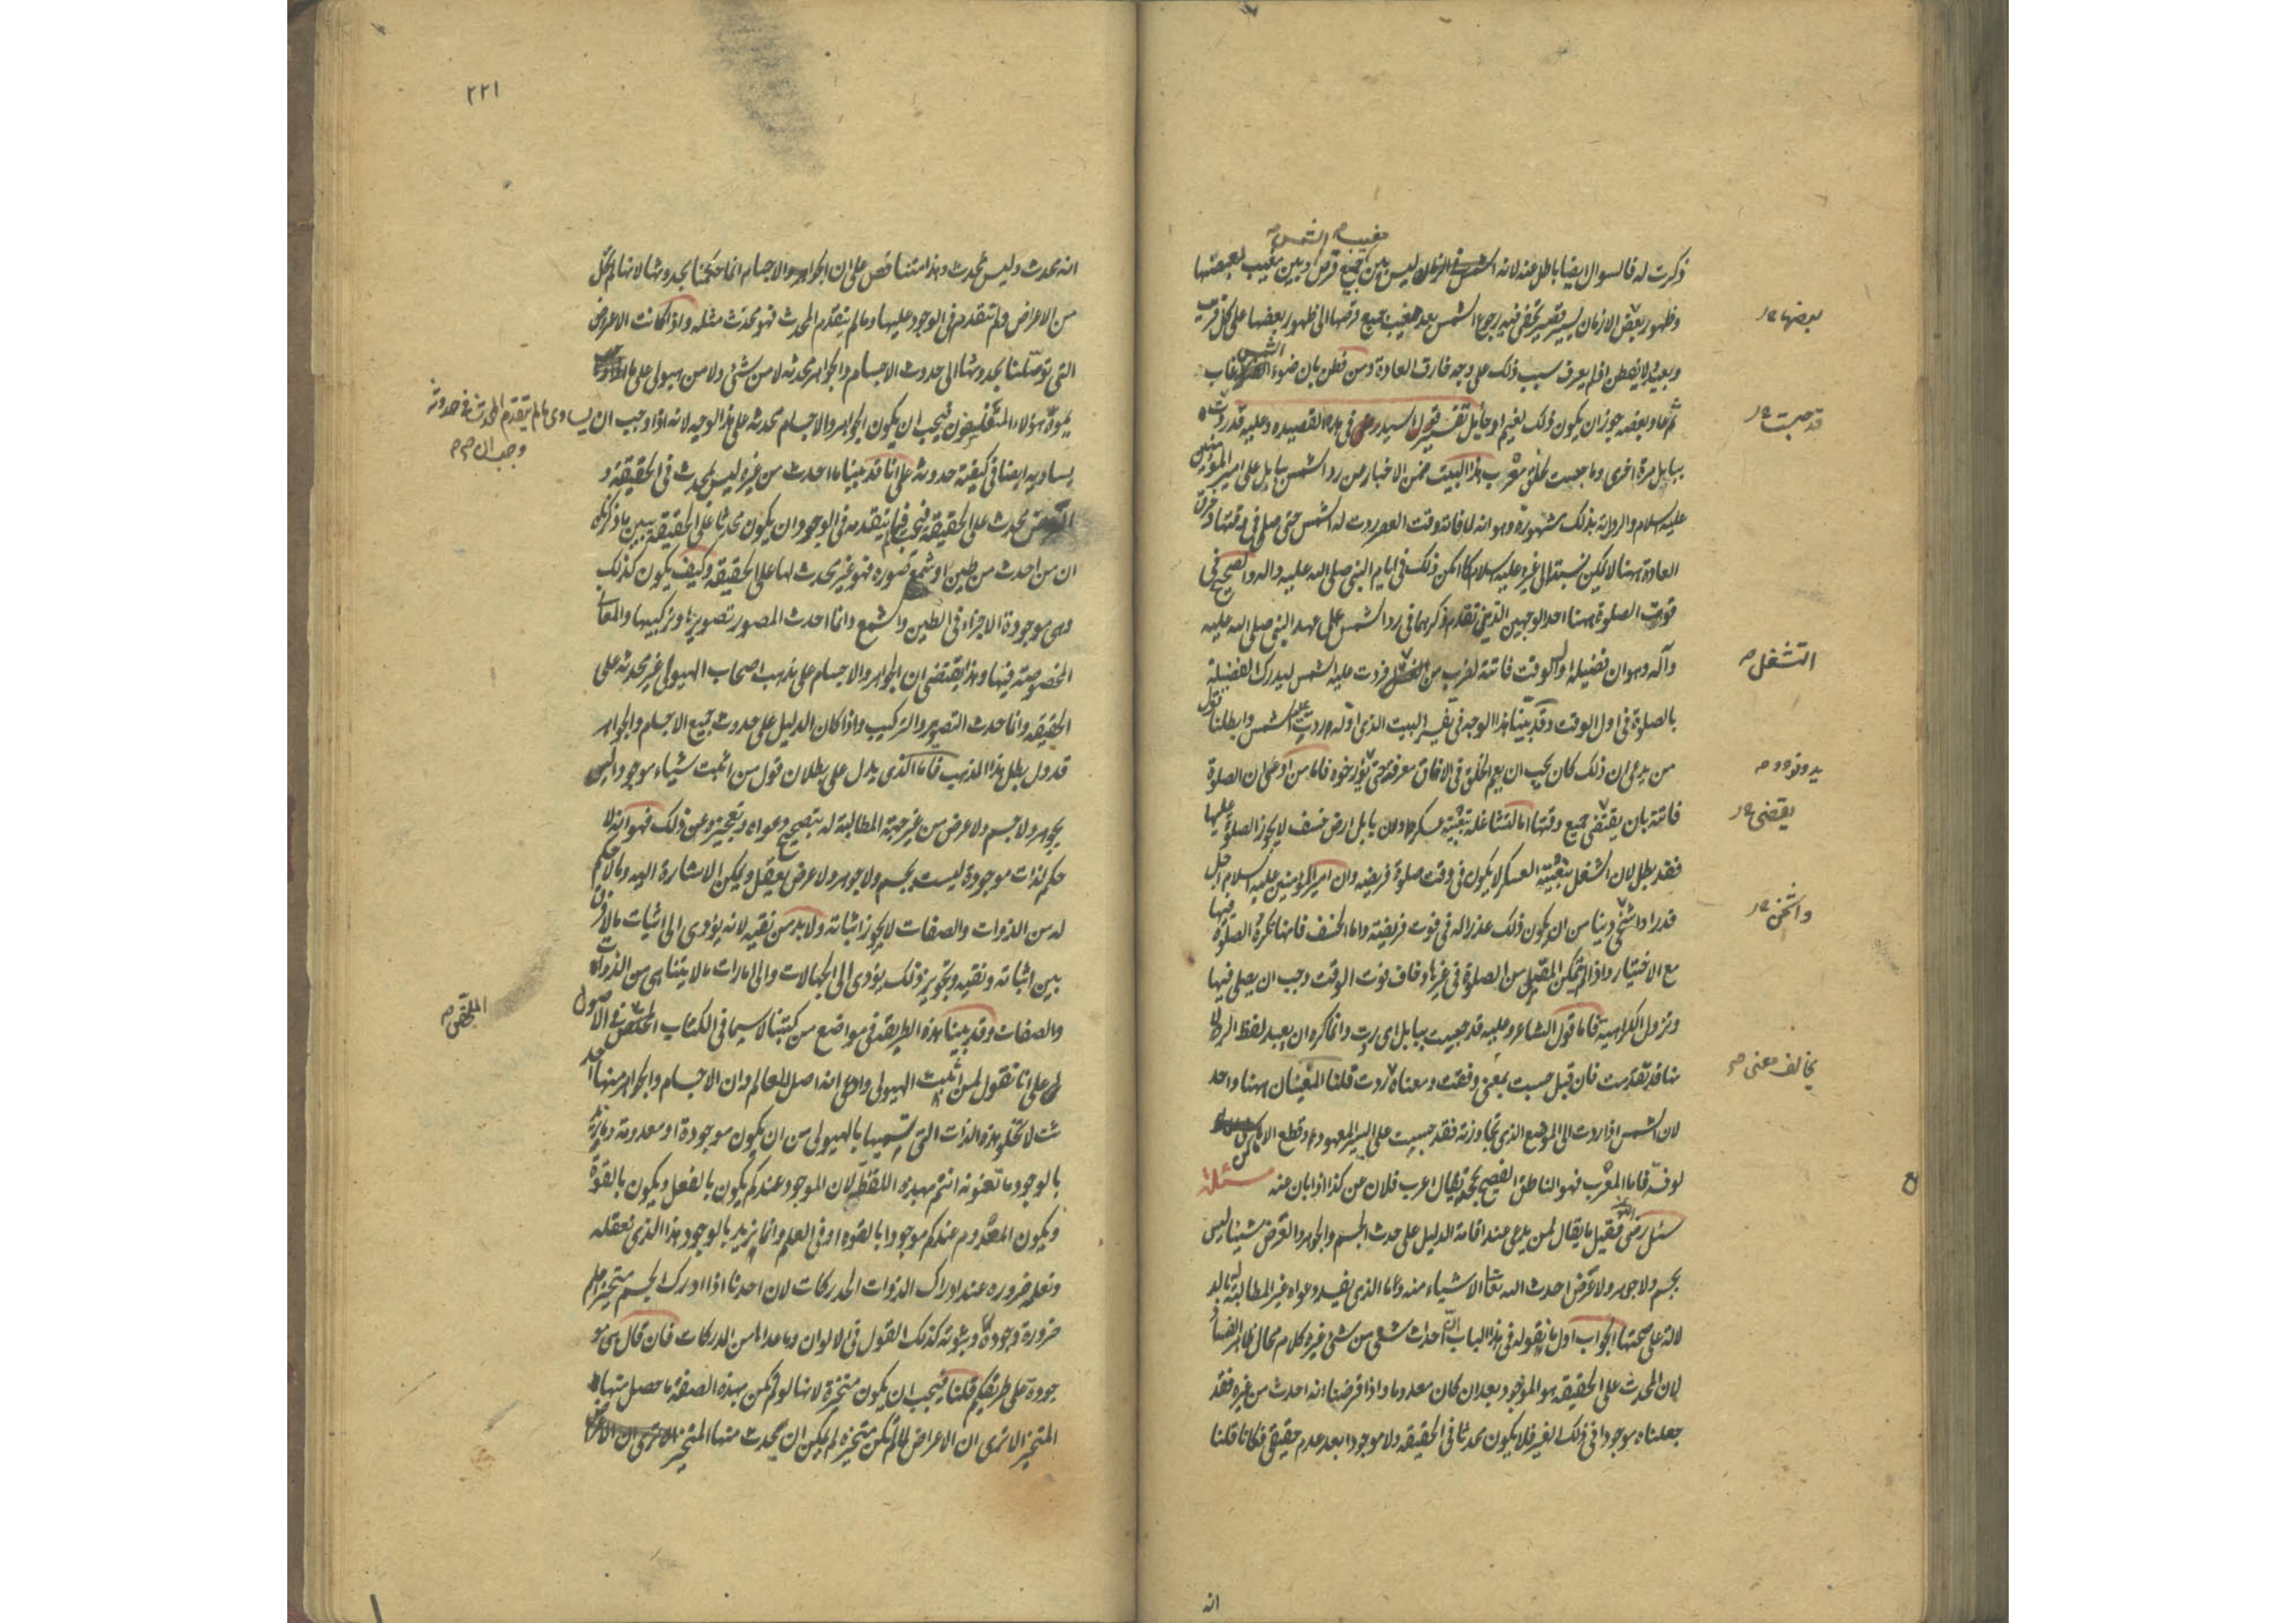 مغيب الشمس
ذكرت له فالسوال ايضا باطل عنه لانه ليس بين جميع قرص وبين مغيب بعضها
وظهور بعض الازمان يسير قصير يخفى فيه رجوع الشمس بعد مغيب جميع قرصها الى ظهور بعضها على كل قريب
وبعيد لا يفطن اذا لم يعرف سبب ذلك على وجه خارق العادة ومن فطن بان ضوء الشمس غاب
ثم عاد بعضه جوز ان يكون ذلك لغيم او حائل تفسير قول السيد رض في هذه القصيدة وعليه قد ردت
ببابل مرة اخرى وما حبست لخلق معرب هذا البيت يتضمن الاخبار عن رد الشمس ببابل على امير المؤمنين
عليه السلام والرواية بذلك مشهورة وهو انه لما فاته وقت العصر ردت له الشمس حتى صلى في وقتها وخرق
العادة ههنا لا يمكن نسبته الى غيره عليه السلام كما امكن ذلك في ايام النبي صلى الله عليه واله والصحيح في
فوت الصلوة ههنا احد الوجهين الذين تقدم ذكرهما في رد الشمس على عهد النبي صلى الله عليه
وآله وهو ان فضيلة اول الوقت فاتته لضرب من الشغل فردت عليه الشمس ليدرك الفضيلة
بالصلوة في اول الوقت وقد بينا هذا الوجه في تفسير البيت الذي اوله ردت عليه الشمس وابطلنا قول
من يدعى ان ذلك كان يجب ان يعم الخلق في الافاق معرفته حتى يؤرخوه فاما من ادعى ان الصلوة
فاتته بان يقتضى جميع وقتها اما لتشاغله بتعبية عسكره اولان بابل ارض خسف لا يجوز الصلوة عليها
فقد بطل لان الشغل بتعبية العسكر لا يكون في وقت صلوة فريضة وان امير المؤمنين عليه السلام اجل
قدرا واشخى دينا من ان يكون ذلك عذرا له في فوت فريضة واما الخسف فانها تكره الصلوة فيها
مع الاختيار واذا لم يتمكن المصلي من الصلوة في غيرها وخاف فوت الوقت وجب ان يصلى فيها
وتزول الكراهية فاما قول الشاعر وعليه قد حبست ببابل اى ردت وانما كره ان يعيد لفظ الرد لا
منا قد تقدمت فان قيل حبست بمعنى وقفت ومعناه ردت قلنا المعنيان ههنا واحد
لان الشمس اذا ردت الى الموضع الذي تجاوزته فقد حبست على السير المعهود وقطع الاماكن
لوفه فاما المعرب فهو الناطق الفصيح بحجته يقال اعرب فلان عن كذا اذا ابان منه مسئلة
سئل رضى الله فقيل ما يقال لمن يدعى عند اقامة الدليل على حدث الجسم والجوهر والعرض شيئا ليس
بجسم ولا جوهر ولا عرض احدث الله تعا الاشياء منه وما الذي يفسد دعواه غير المطالبة له بالد
لالة على صحتها الجواب اول ما نقوله في هذا الباب ان احداث شئ من شئ غيره كلام محال ظاهر الفساد
لان المحدث على الحقيقة هو الموجود بعد ان كان معدوما واذا فرضنا انه احدث من غيره فقد
جعلناه موجودا في ذلك الغير فلا يكون محدثا في الحقيقة ولا موجودا بعد عدم حقيقي فكانا قلنا
انه
بعضها
قد حبست
التشغل
يدونوه
يقتضى
واثخن
يخالف معنى
٢٢١
انه محدث وليس بمحدث وهذا متناقض على ان الجواهر والاجسام انما حكمنا بحدوثها لانها لم تخل
من الاعراض ولم تتقدم في الوجود عليها وما لم يتقدم المحدث فهو محدث مثله واذا كانت الاعراض
التي توصلنا بحدوثها الى حدوث الاجسام والجواهر محدثة لا من شئ ولا من هيولى على ما
يموه هؤلاء المتفلسفون فيجب ان يكون الجواهر والاجسام محدثة على هذا الوجه لانه اذا وجب ان يساوى ما لم يتقدم المحدث في حدوثه
وجب ان
يساويه ايضا في كيفية حدوثه على انا قد بينا ما احدث من غيره ليس بمحدث في الحقيقة و
العرض محدث على الحقيقة فيجب فيما لم يتقدمه في الوجود ان يكون محدثا على الحقيقة يبين ما ذكرناه
ان من احدث من طين او شمع صورة فهو غير محدث لها على الحقيقة وكيف يكون كذلك
وهى موجودة الاجزاء في الطين والشمع وانما احدث المصور تصويرها وتركيبها والمعانى
المخصوصة فيها وهذا يقتضى ان الجواهر والاجسام على مذهب اصحاب الهيولى غير محدثة على
الحقيقة وانما حدث التصوير والتركيب واذا كان الدليل على حدوث جميع الاجسام والجواهر
قد دل بطل هذا المذهب فاما الذي يدل على بطلان قول من اثبت شيئا موجودا ليس
بجوهر ولا جسم ولا عرض من غير جهة المطالبة له بتصحيح دعواه وتعجيزه عن ذلك فهو انه لا
حكم لذات موجودة ليست بجسم ولا جوهر ولا عرض يعقل ويمكن الاشارة اليه وما لا حكم
له من الذوات والصفات لا يجوز اثباته ولا بد من نفيه لانه يؤدى الى اثبات ما لا فرق
بين اثباته ونفيه وتجويز ذلك يؤدى الى الجهالات والى اثبات ما لا يتناهى من الذوات
والصفات وقد بينا هذه الطريقة في مواضع من كتبنا لا سيما في الكتاب الملخص في الاصول
على انا نقول لمن اثبت الهيولى وادعى انه اصل للعالم وان الاجسام والجواهر منها احد
ثت لا تخلو هذه الذات التي تسميها بالهيولى من ان يكون موجودة او معدومة وما نريد
بالوجود ما تعنونه انتم بهذه اللفظة لان الموجود عندكم يكون بالفعل ويكون بالقوة
ويكون المعدوم عندكم موجودا بالقوة او في العلم وانما نريد بالوجود هذا الذي نعقله
ونعلمه ضرورة عند ادراك الذوات المدركات لان احدنا اذا ادرك الجسم متحيزا علم
ضرورة وجوده وثبوته كذلك القول في الالوان وما عداها من المدركات فان قال هى مو
جودة على طريقكم قلنا فيجب ان يكون متحيزة لانها لو لم تكن بهذه الصفة ما حصل منها
المتحيز الا ترى ان الاعراض لما لم تكن متحيزة لم يمكن ان يحدث منها المتحيز